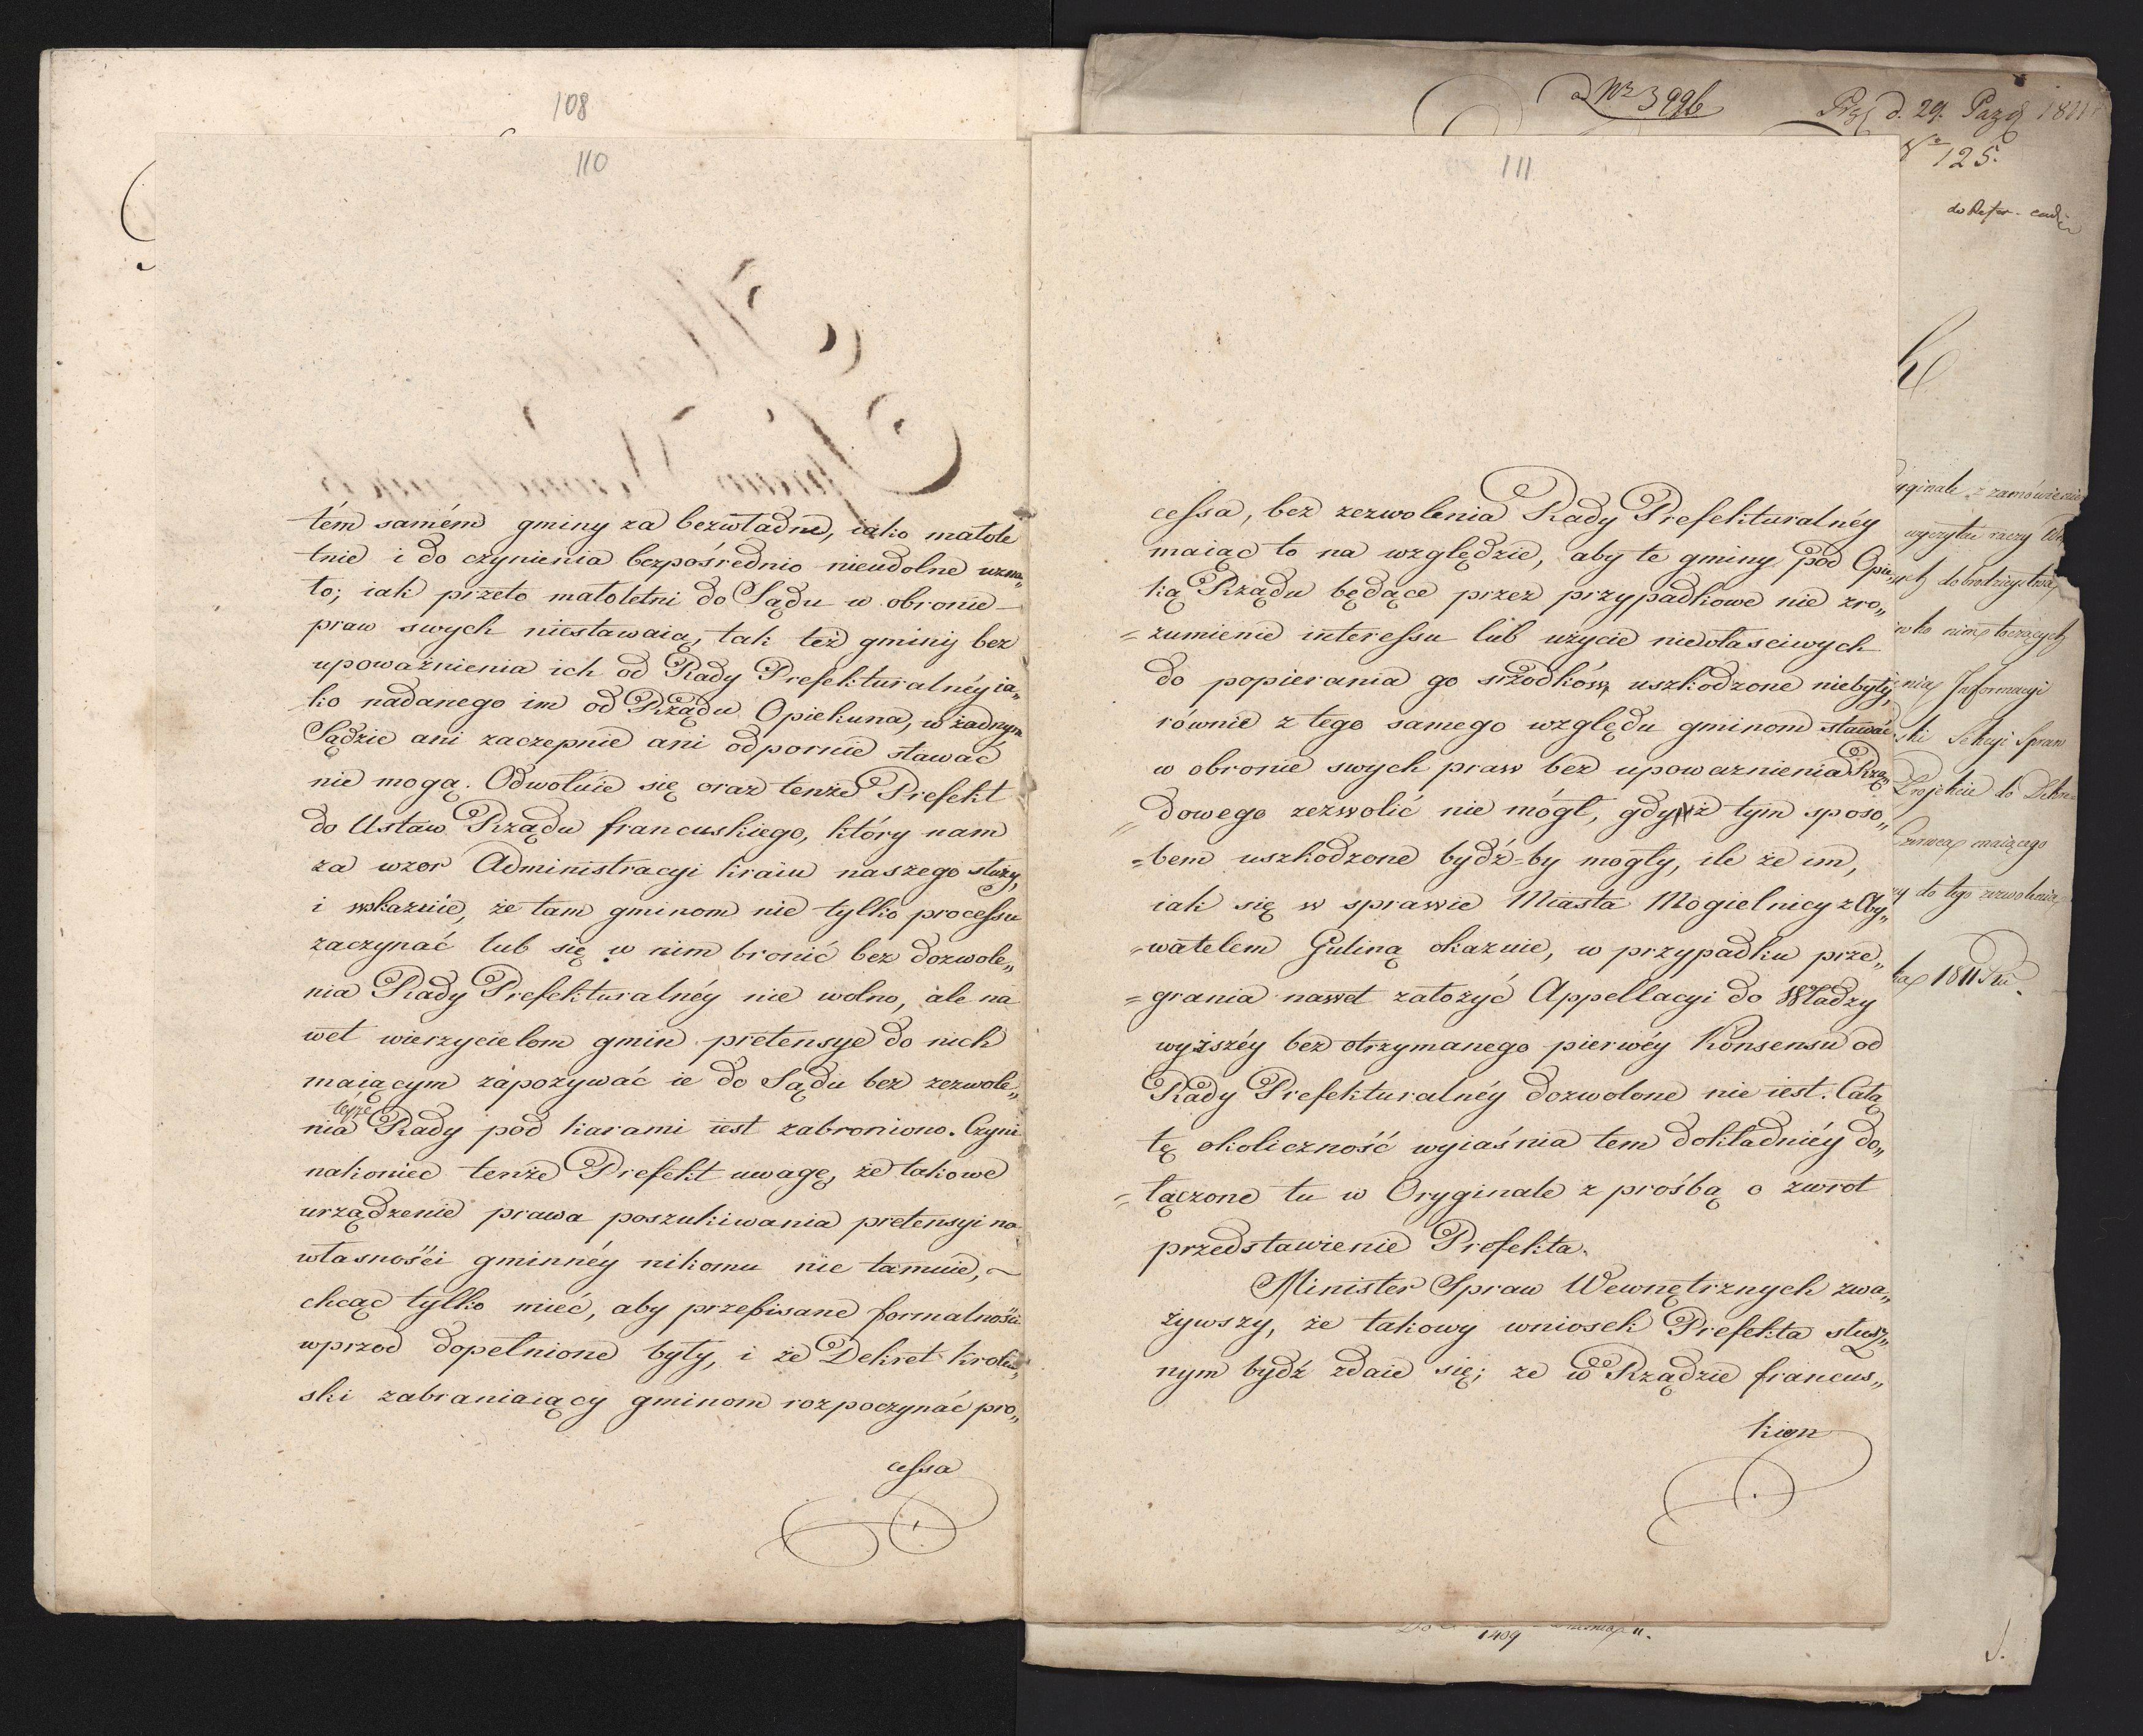 108
110
tém samém gminy za bezwładne, iako małole
tnie i do czynienia bezpośrednio nieudolne uzna„
to; iak przeto małoletni do Sądu w obronie
praw swych niestawaią, tak też gminy bez
upoważnienia ich od Rady Prefekturalnéy ia„
ko nadanego im od Rządu Opiekuna, w żadnym
Sądzie ani zaczepnie ani odpornie stawać
nie mogą. Odwołuie się oraz tenże Prefekt
do Ustaw Rządu francuskiego, który nam
za wzor Administracyi kraiu naszego służy,
i wskazuie, że tam gminom nie tylko processu
zaczynać lub się w nim bronić bez dozwole„
nia Rady Prefekturalnéy nie wolno, ale na
wet wierzycielom gmin pretensye do nich
maiącym zapozywać ie do Sądu bez zezwole„
téyże
nia Rady pod karami iest zabroniono. Czyni
nakoniec tenże Prefekt uwagę, że takowe
urządzenie prawa poszukiwania pretensyi na
własności gminnéy nikomu nie tamuie,
chcąc tylko mieć, aby przepisane formalności
wprzod dopełnione były, i że Dekret Krolew„
ski zabraniaiący gminom rozpoczynać pro„
cessa
111
cessa, bez zezwolenia Rady Prefekturalnéy
maiąc to na względzie, aby te gminy pod Opie„
ką Rządu będące przez przypadkowe nie zro„
=zumienie interessu lub użycie niewłasciwych
do popierania go srzodków, uszkodzone niebyły,
równie z tego samego względu gminom stawać
w obronie swych praw bez upoważnienia Rzą„
=dowego zezwolić nie mógł, gdyż tym sposo„
=bem uszkodzone bydź=by mogły, ile że im,
iak się w sprawie Miasta Mogielnicy z Oby„
=watelem Guliną okazuie, w przypadku prze„
=grania nawet założyć Appellacyi do Władzy
wyższéy bez otrzymanego pierwéy Konsensu od
Rady Prefekturalnéy dozwolone nie iest. Całą
tę okoliczność wyiaśnia tem dokładniéy do„
=łączone tu w Oryginale z prośbą o zwrot
przedstawienie Prefekta.
Minister Spraw Wewnętrznych zwa„
żywszy, że takowy wniosek Prefekta słusz„
nym bydź zdaie się; że w Rządzie francus„
kiem
ad Nr 3996
d. 29. Pazd 1811
No 125.
yginale z zamówienie
wyczytać raczy
dobrodzieystwa
nim toczących
nia Informacyi
ski Sekcyi Spraw
Projekcie do Dekre
Czerwca maiącego
do tego zezwolenia
1811 Ru.
1409